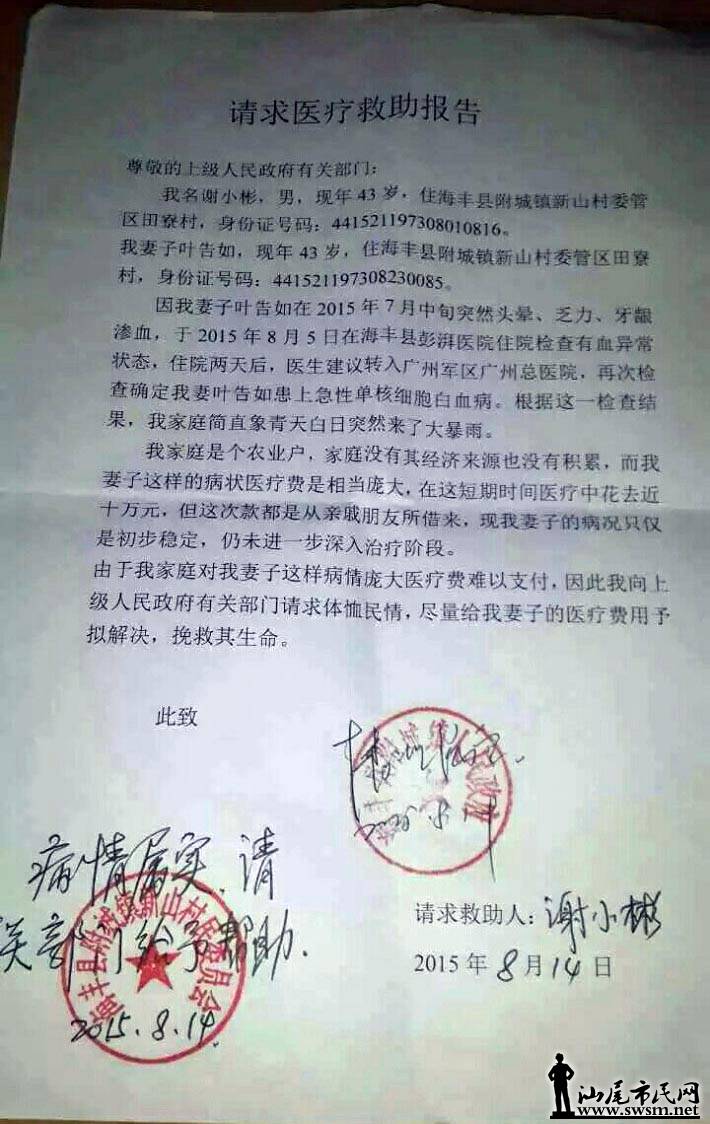 请求医疗救助报告
尊敬的上级人民政府有关部门：
我名谢小彬，男，现年 43 岁，住海丰县附城镇新山村委管
区田寮村，身份证号码：441521197308010816。
我妻子叶告如，现年 43 岁，住海丰县附城镇新山村委管区田寮
村，身份证号码：441521197308230085。
因我妻子叶告如在 2015 年 7 月中旬突然头晕、乏力、牙龈
渗血，于 2015 年 8 月 5 日在海丰县彭湃医院住院检查有血异常
状态，住院两天后，医生建议转入广州军区广州总医院，再次检
查确定我妻叶告如患上急性单核细胞白血病。根据这一检查结
果，我家庭简直象青天白日突然来了大暴雨。
我家庭是个农业户，家庭没有其经济来源也没有积累，而我
妻子这样的病状医疗费是相当庞大，在这短期时间医疗中花去近
十万元，但这次款都是从亲戚朋友所借来，现我妻子的病况只仅
是初步稳定，仍未进一步深入治疗阶段。
由于我家庭对我妻子这样病情庞大医疗费难以支付，因此我向上
级人民政府有关部门请求体恤民情，尽量给我妻子的医疗费用予
拟解决，挽救其生命。
此致
病情属实，请
关部门给予帮助.
海丰县附城镇新山村民委员会
2015.8.14
请求救助人：谢小彬
2015 年 8 月 14 日
汕尾市民网
www.swsm.net